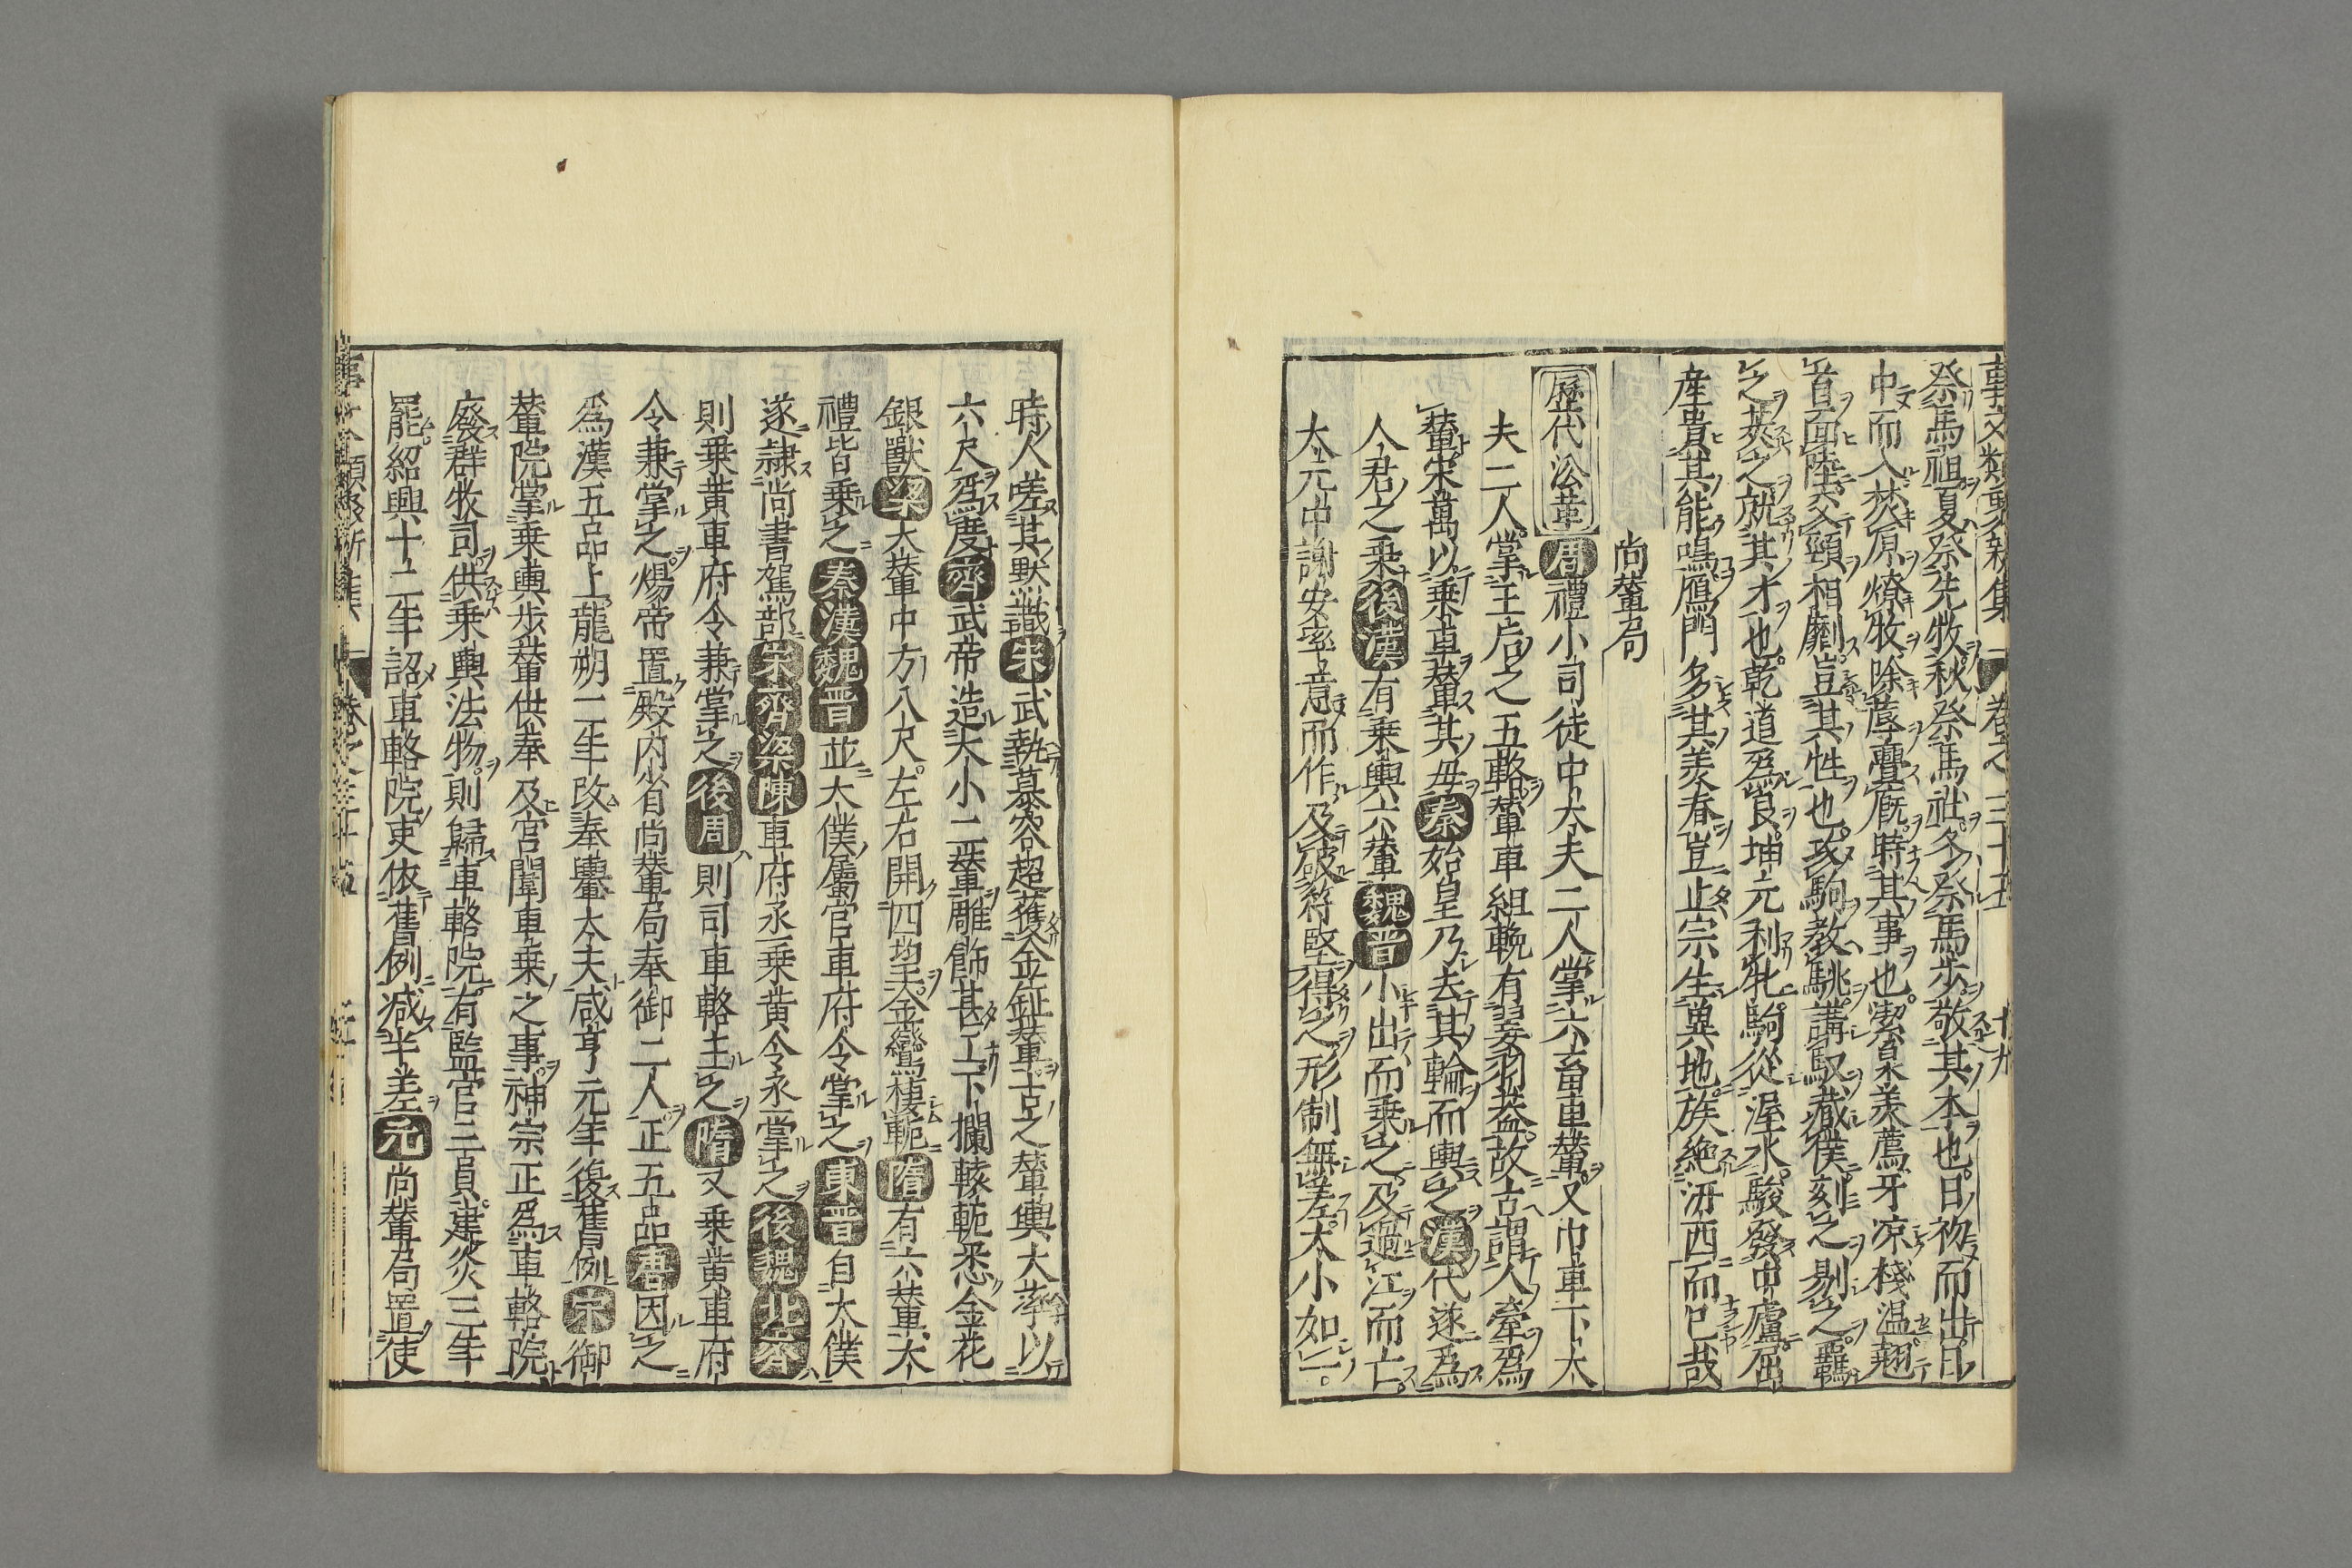 事文類聚新集 卷之三十五 十九
祭馬祖夏祭先牧秋祭馬社冬祭馬步敬其本也日初而出日
中而入焚原燎牧除蓐釁廐時其事也潔泉美薦牙凉棧温翹
首而陸交頸相劘豈其性也攻駒教駣講馭藏僕刻之剔之羈
之莢之就其才也乾道爲良坤元利牝駒從渥水駿發中廬屈
産貴其能鳴鴈門多其羙春豈止宗生冀地族絶洀西而已哉
尚輦局
歷代沿革 周禮小司徒中大夫二人掌六畜車輦又巾車下大
夫二人掌王后之五輅輦車組輓有翣羽葢故古謂人牽爲
輦宋萬以乗車輦其母 秦 始皇乃去其輪而輿之 漢 代遂爲
人君之乗 後漢 有乗輿六輦 魏晉 小出而乗之及過江而亡
大元中謝安率意而作及破苻堅得之形制無差大小如一
時人嗟其默識 宋 武執慕容超獲金鉦輦古之輦輿大率以
六尺爲度 齊 武帝造大小二輦雕飾甚工下欄轅軛悉金花
銀獸 梁 大輦中方八尺左右開四望金鸞棲軛 隋 有六輦大
禮皆乗之 秦漢魏晋 並大僕屬官車府令掌之 東晋 自太僕
遂隷尚書駕部 宋齊梁陳 車府丞乗黄令丞掌之 後魏北齊
則乗黄車府令兼掌之 後周 則司車輅主之 隋 又乗黄車府
令兼掌之煬帝置殿内省尚輦局奉御二人正五品 唐 因之
爲漢五品上龍朔二年改奉轝大夫咸亨元年復舊例 宋 御
輦院掌乗輿步輦供奉及宮闈車乗之事神宗正爲車輅院
廢群牧司供乗輿法物則歸車輅院有監官三員建炎三年
罷紹興十二年詔車輅院吏依舊例减半差 元 尚輦局置使